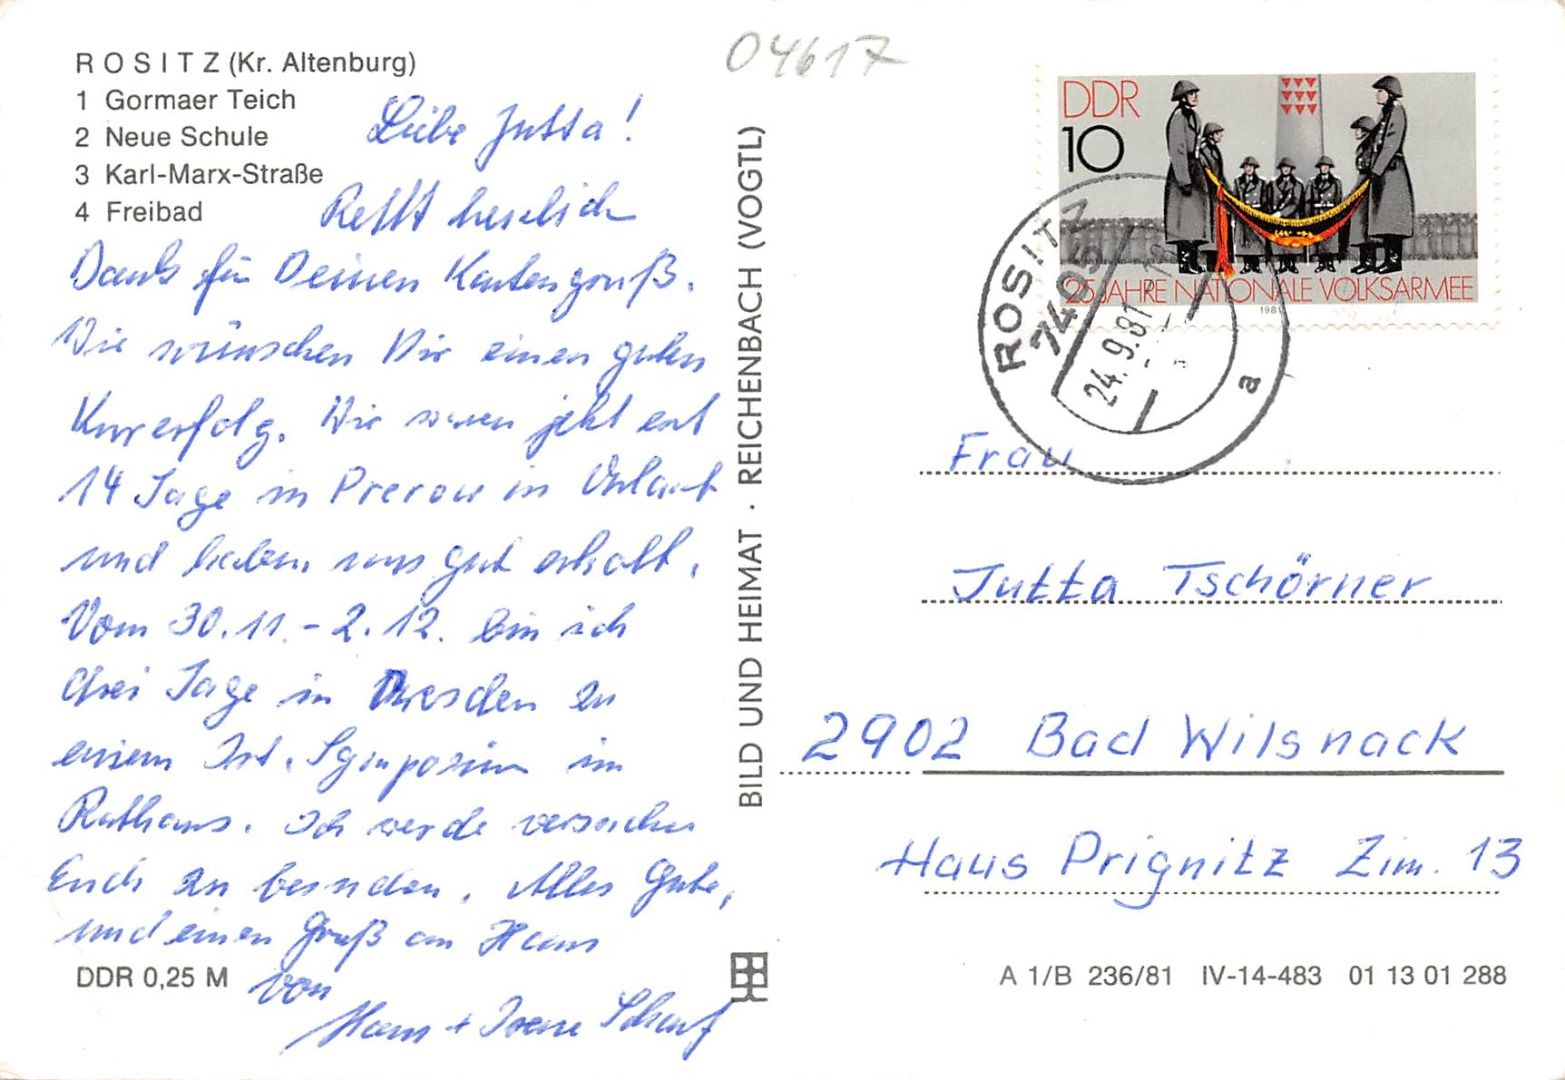 04617
ROSITZ (Kr. Altenburg)
1 Gormaer Teich
2 Neue Schule
3 Karl-Marx-Straße
4 Freibad
Liebe Jutta!
Recht herzlich
Dank für Deinen Kartengruß.
Wir wünschen Dir einen guten
Kurerfolg. Wir waren jetzt erst
14 Tage in Prerow in Urlaub
und haben uns gut erholt.
Vom 30.11.-2.12. bin ich
drei Tage in Dresden zu
einem Symposium im
Rathaus. Ich werde versuchen
Euch zu besuchen. Alles Gute,
und einen Gruß an Hans
von
Hans + Irene Scharf
DDR 0,25 M
BILD UND HEIMAT · REICHENBACH (VOGTL)
DDR
10
25 JAHRE NATIONALE VOLKSARMEE
1981
ROSITZ
7405
24.9.81
a
Frau
Jutta Tschörner
2902 Bad Wilsnack
Haus Prignitz Zim. 13
A 1/B 236/81 IV-14-483 01 13 01 288